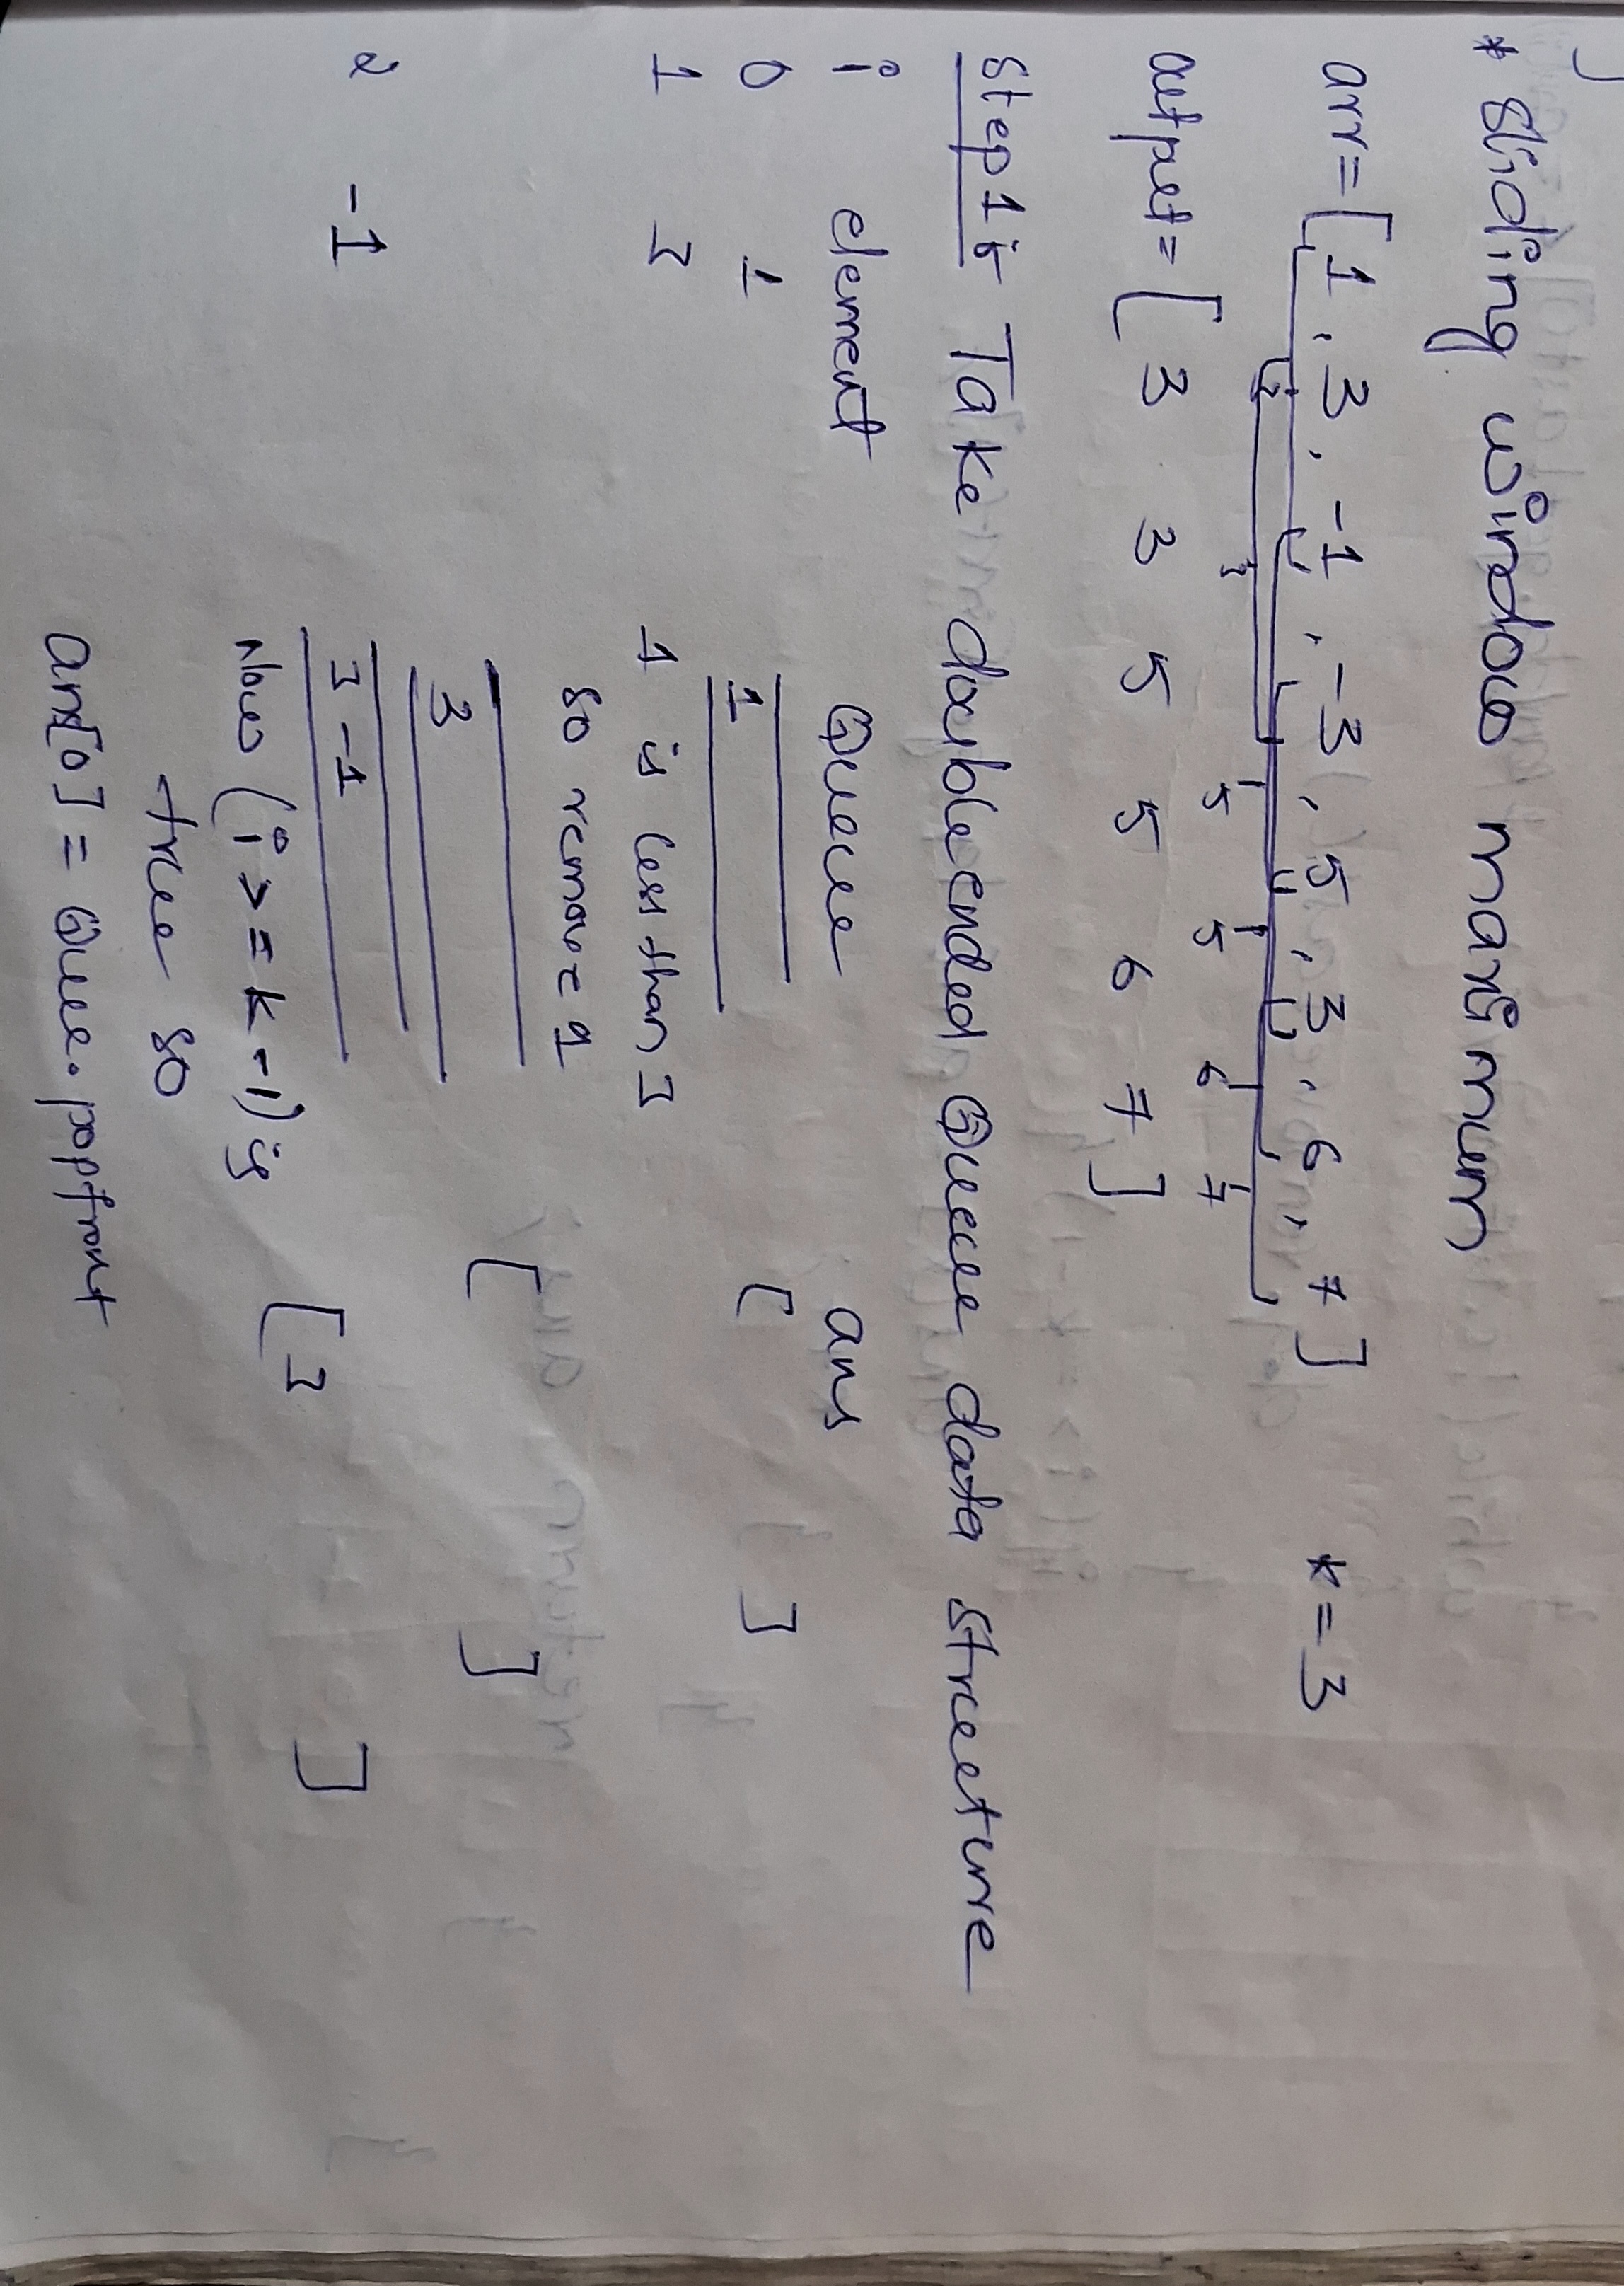 * Sliding window maximum
arr = [1, 3, -1, -3, 5, 3, 6, 7] k = 3
3 3 5 5 6 7
output = [ 3 3 5 5 6 7 ]
Step 1 :- Take double ended Queue data structure
i element Queue ans
0 1 1 [ ]
1 3 1 is less than 3
so remove 1
[ ]
3
2 -1 3 -1
Now (i >= k-1) is [ 3 ]
true so
ans[0] = Que.popfront